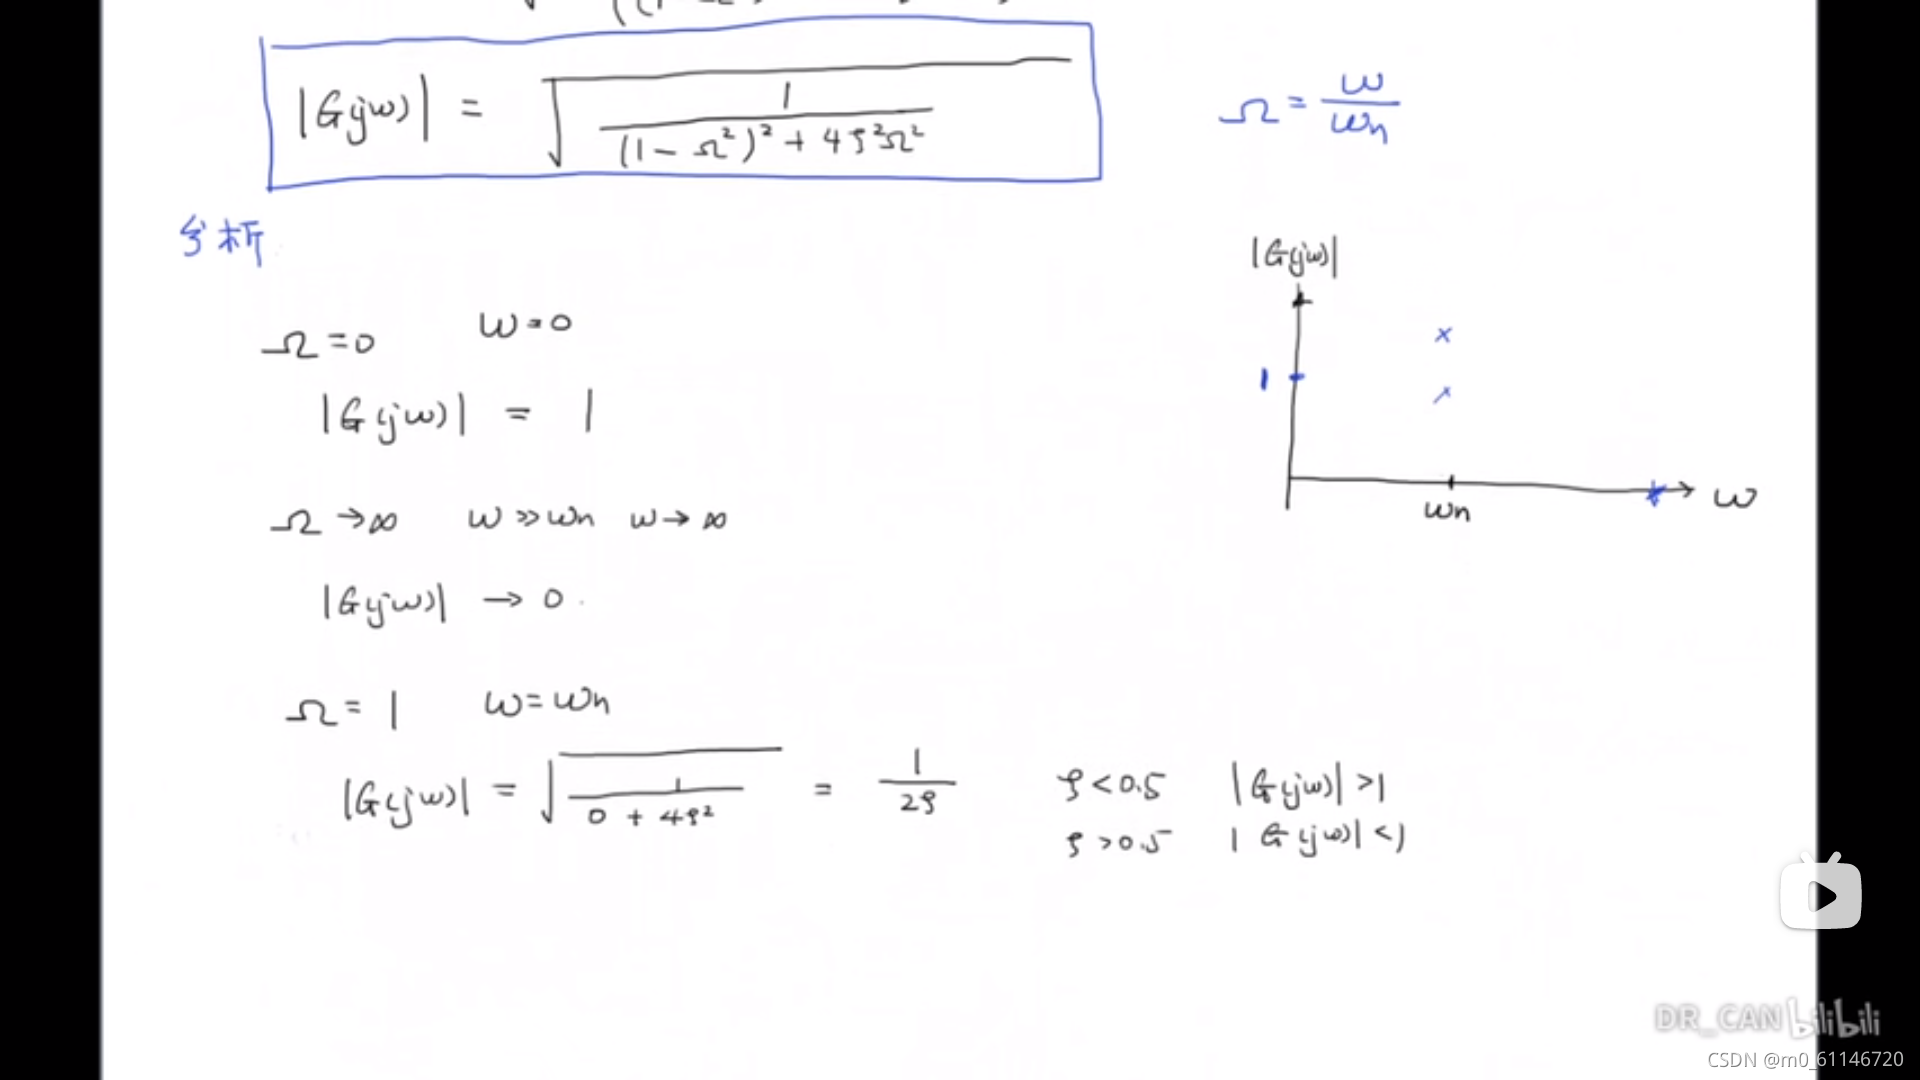 |G(jω)| = √(1 / ((1 - Ω²)² + 4ζ²Ω²))
Ω = ω/ωn
分析
|G(jω)|
Ω = 0 ω = 0
1
|G(jω)| = 1
ωn ω
Ω → ∞ ω >> ωn ω → ∞
|G(jω)| → 0
Ω = 1 ω = ωn
|G(jω)| = √(1 / (0 + 4ζ²)) = 1/2ζ ζ < 0.5 |G(jω)| > 1
ζ > 0.5 |G(jω)| < 1
DR_CAN bilibili
CSDN @m0_61146720